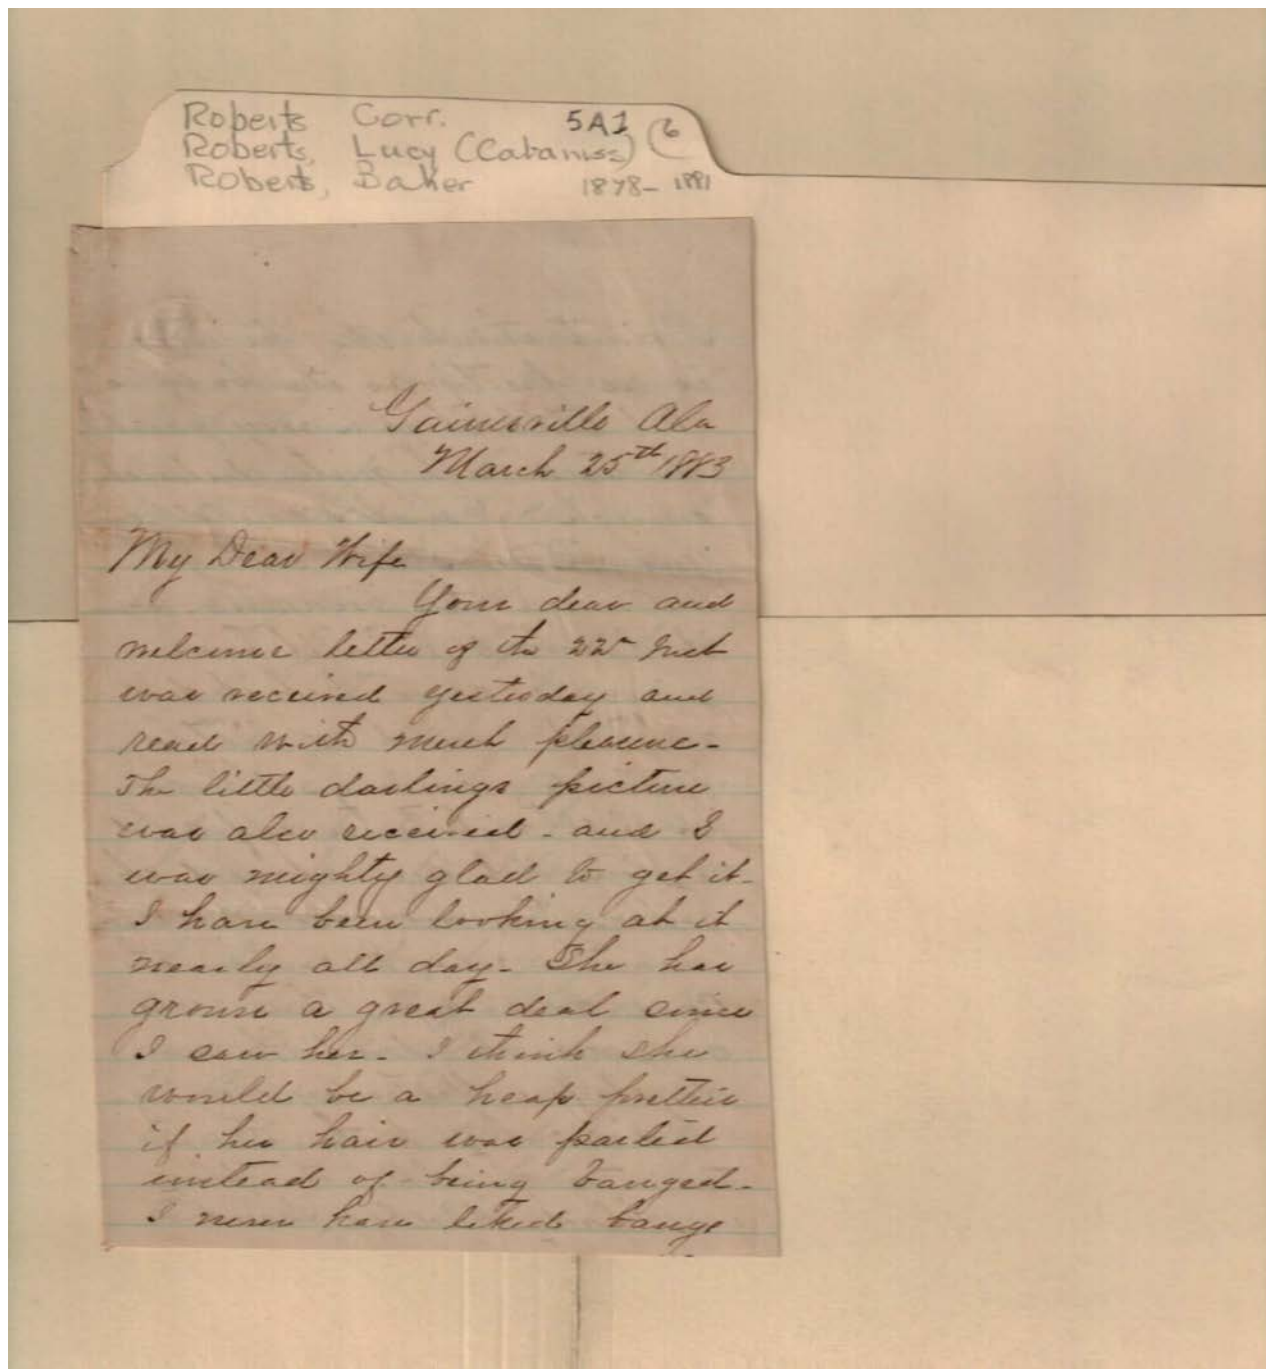 Roberts Corr. 5A1 (6
Roberts, Lucy (Cabaniss)
Roberts, Baker 1878-1881
Gainesville Ala
March 25th 1883
My Dear Wife
Your dear and
welcome letter of the 22d Inst
was received yesterday and
read with much pleasure-
The little darlings picture
was also received - and I
was mighty glad to get it-
I have been looking at it
nearly all day- She has
grown a great deal since
I saw her- I think she
would be a heap prettier
if her hair was parted
instead of being banged-
I never have liked bangs